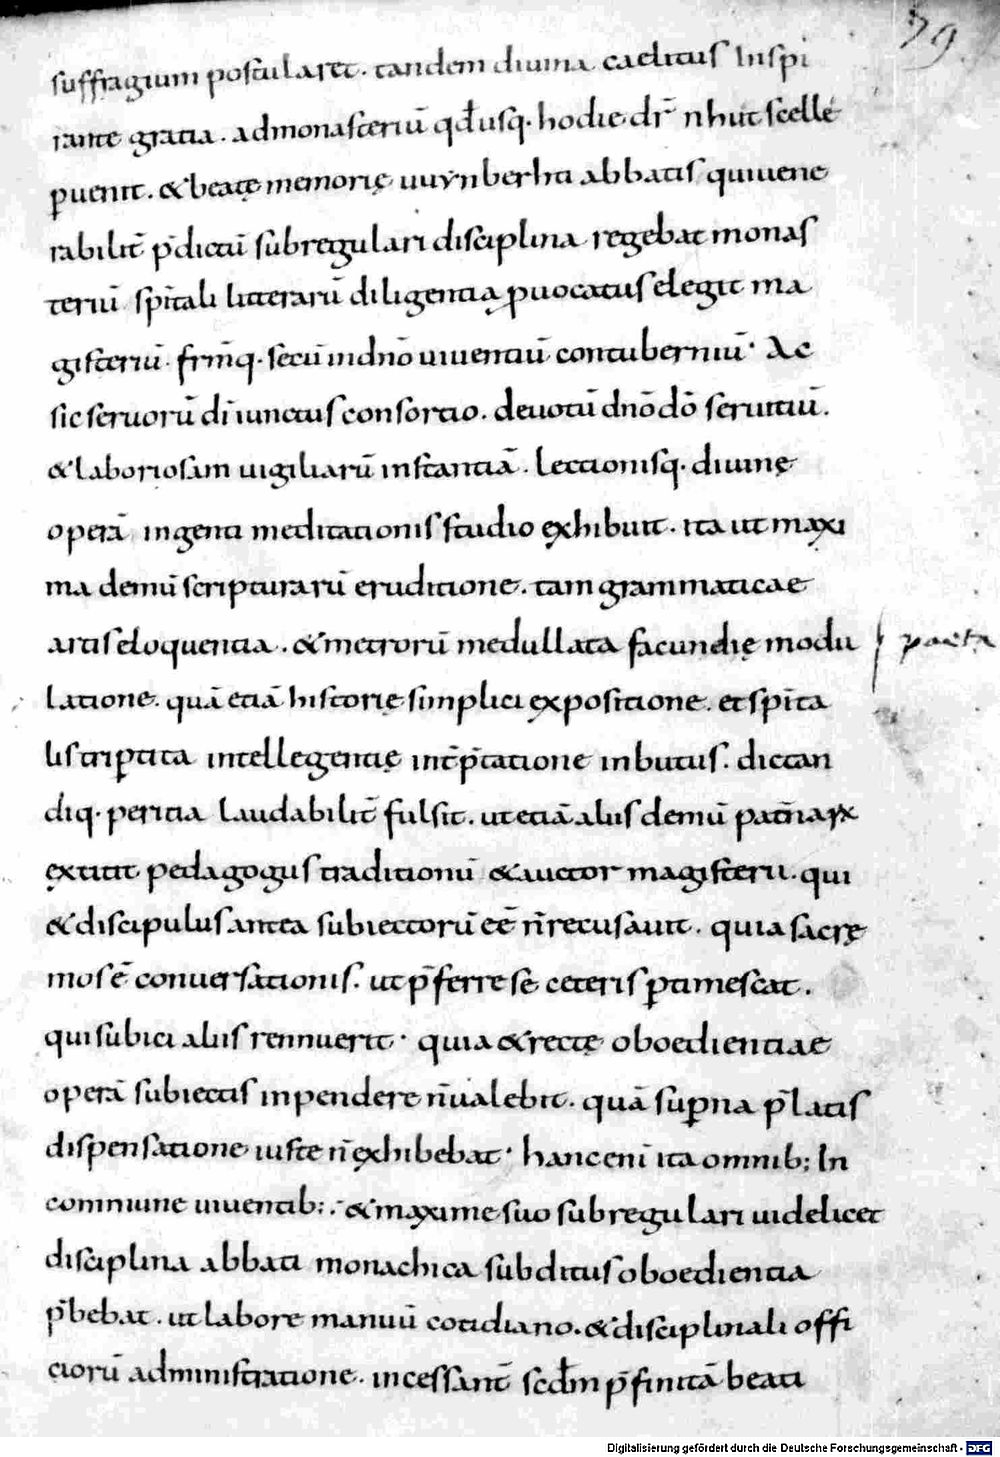 79
suffragium postularet. tandem diuina caelitus Inspi
rante gratia. admonasteriū qđusq· hodie dr̄ nhutscelle
ꝑuenit. &beatę memorię uuẏnberhti abbatis quiuene
rabilit̄ p̄dictū subregulari disciplina regebat monas
teriū sp̄itali litterarū diligentia ꝓuocatus elegit ma
gisterium. frm̄q· secū indn̄o uiuentiū contuberniū· Ac
sic seruorū dī iunctus consortio. deuotū dn̄o dō seruitiū.
&laboriosam uigiliarū instantiā. lectionisq· diuinę
operā ingenti meditationis studio exhibuit. ita ut maxi
ma demū scripturarū eruditione. tam grammaticae
artis eloquentia. &metrorū medullata facundię modu
poeta
latione. quā etiā historię simplici expositione. et sp̄ita
li stripertita intellegentię int̄p̄tatione inbutus. dictan
diq· peritia laudabilit̄ fulsit. ut etiā aliis demū
extitit pedagogus traditionū &auctor magisterii. qui
&discipulus antea subiectorū eē n̄recusauit. quia sacrę
mos ē conuersationis. ut p̄ferre se ceteris ꝑtimescat.
qui subici aliis rennuerit· quia &rectę oboedientiae
operā subiectis inpendere n̄ualebit. quā suꝑna p̄latis
dispensatione iuste n̄exhibebat· hanc enī ita omnib; In
commune uiuentib;. &maxime suo subregulari uidelicet
disciplina abbati monachica subditus oboedientia
p̄bebat. ut labore manuū cotidiano. &disciplinali offi
ciorū administratione. incessant̄ scdm̄ p̄finitā beati
Digitalisierung gefördert durch die Deutsche Forschungsgemeinschaft - DFG